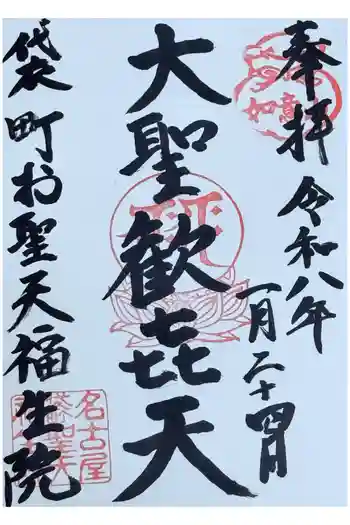 奉拝
令和八年
一月二十四日
大聖歓喜天
袋町お聖天福生院
如意
名古屋